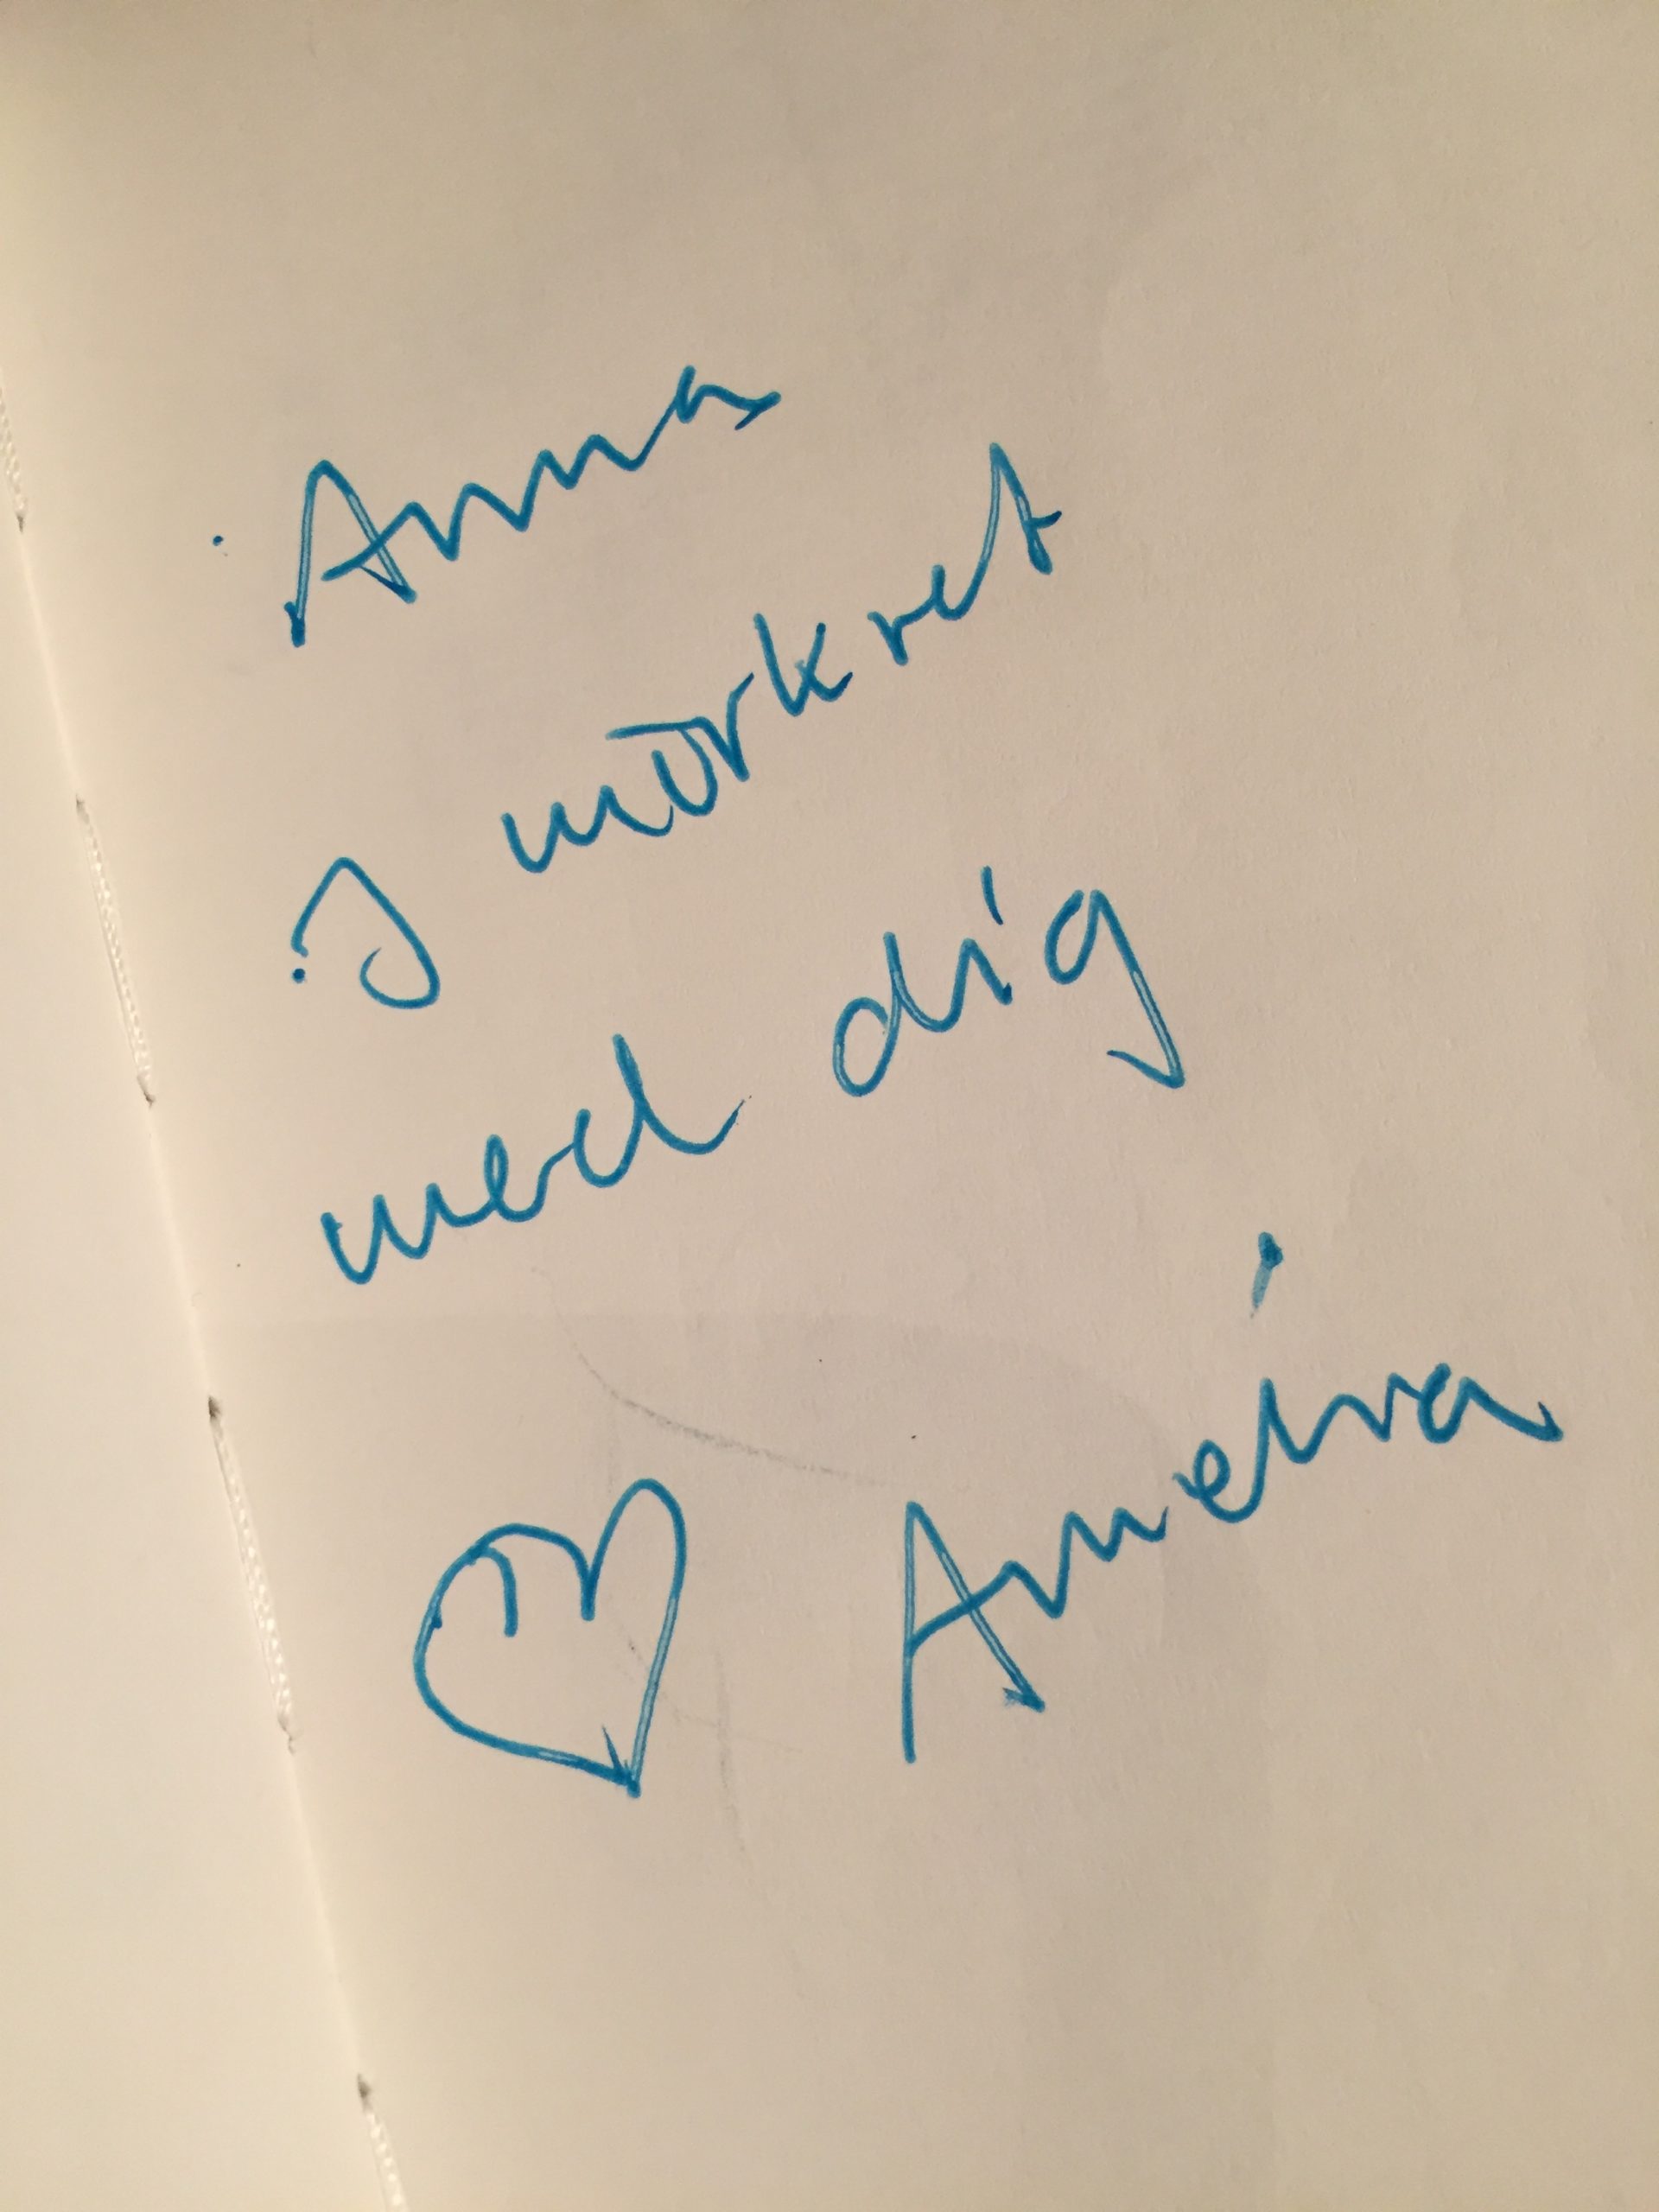 Anna
I mörkret
med dig
Ameira